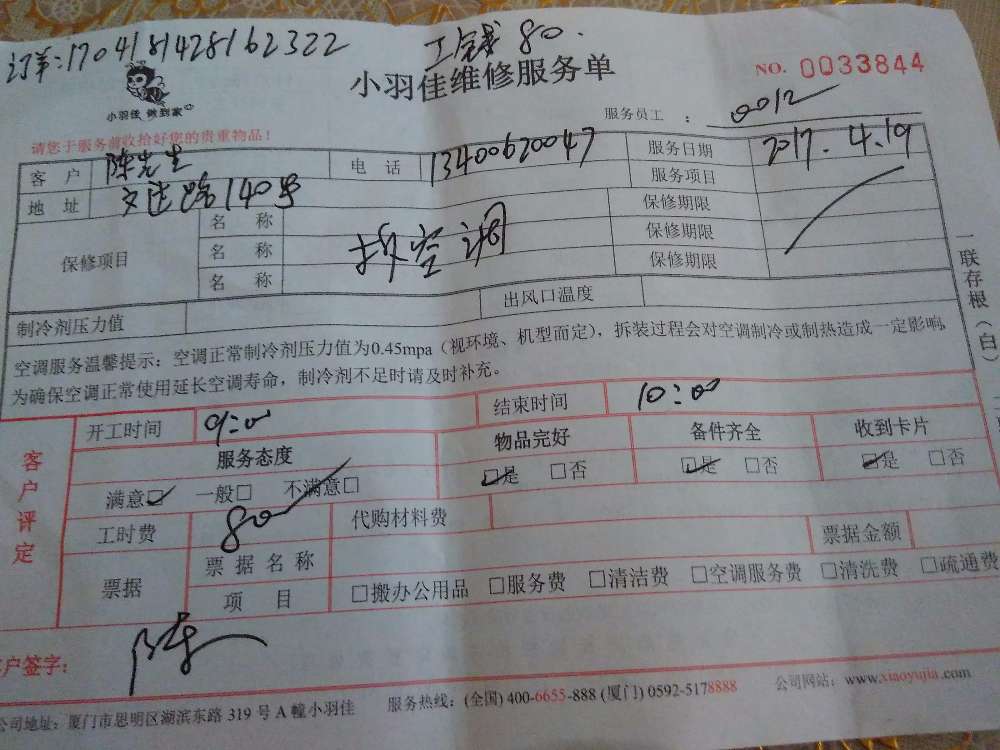 订单:1704181428162322 工钱 80.
小羽佳 做到家
小羽佳维修服务单
NO. 0033844
请您于服务前收拾好您的贵重物品!
服务员工 : 0012
客 户 陈先生 电 话 13400620047 服务日期 2017.4.19
地 址 文进路140号 服务项目
保修项目 名 称 拆空调 保修期限
名 称 保修期限
名 称 保修期限
制冷剂压力值 出风口温度
空调服务温馨提示:空调正常制冷剂压力值为0.45mpa(视环境、机型而定),拆装过程会对空调制冷或制热造成一定影响,
为确保空调正常使用延长空调寿命,制冷剂不足时请及时补充。
一联存根(白)
客户评定
开工时间 9:00 结束时间 10:00
服务态度 物品完好 备件齐全 收到卡片
满意□ 一般□ 不满意□ □是 □否 □是 □否 □是 □否
工时费 80 代购材料费
票据 票据名称 票据金额
项 目 □搬办公用品 □服务费 □清洁费 □空调服务费 □清洗费 □疏通费
户签字: 陈
公司地址:厦门市思明区湖滨东路 319 号 A 幢小羽佳 服务热线:(全国) 400-6655-888 (厦门) 0592-5178888 公司网站:www.xiaoyujia.com